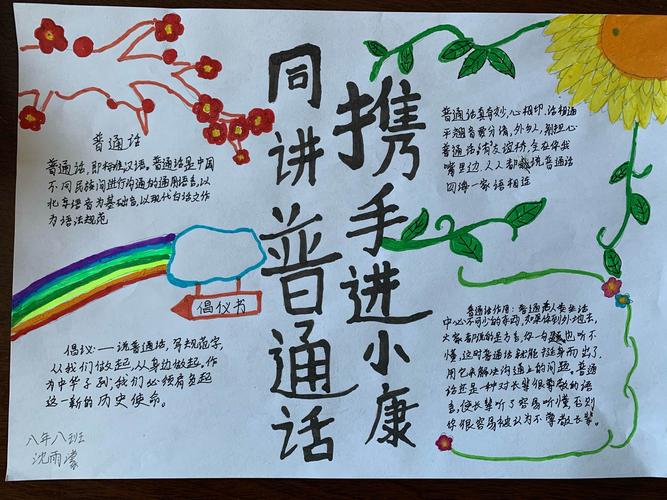 同讲普通话
携手进小康
普通话
普通话,即标准汉语。普通话是中国
不同民族间进行沟通的通用语言,以
北京语音为基础音,以现代白话文作
为语法规范
倡仪书
倡仪:——说普通话,写规范字,
从我们做起,从身边做起,作
为中华子到,我们必须肩负起
这一新的历史使命。
八年八班
沈雨濛
普通话真奇妙,心相印,话相通
平翘音要分清,外乡人,别担心
普通话,有友谊桥,全在你我
嘴里边,人人都说普通话
四海一家语相连
普通话作用:普通是人类生活
中必不可少的东西,如果你到外地去,
大家都用的是方言,你一句也听不
懂,这时普通话就能挺身而出了,
用它来解决沟通上的问题。普通
话还是一种对长辈很尊敬的语
言,使长辈听了容易听懂,否则
你很容易被认为不尊敬长辈。